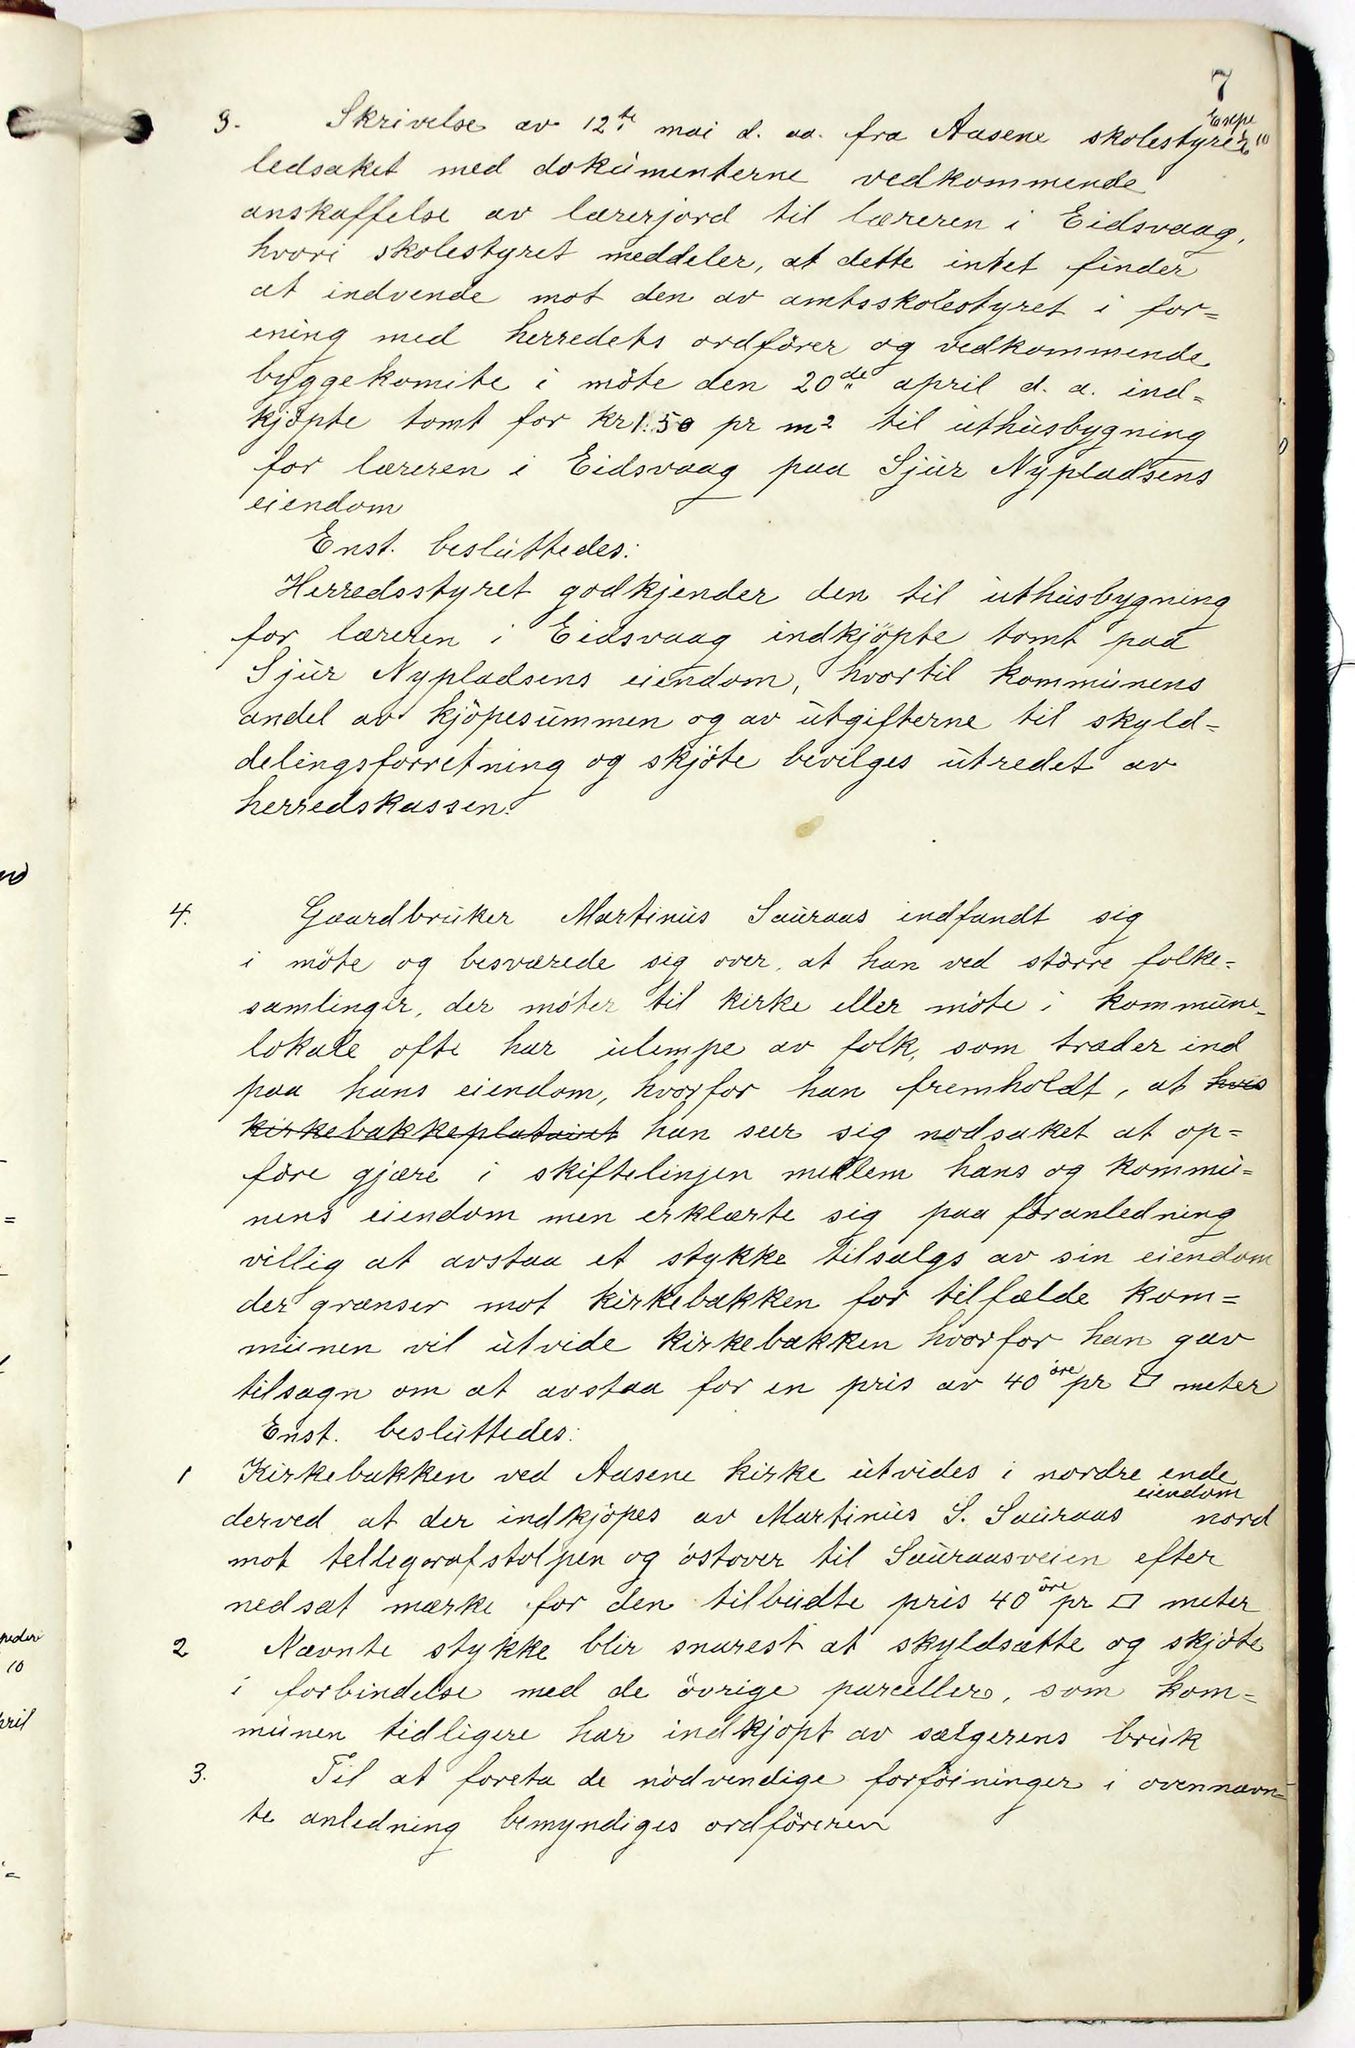 7
Expe
3. Skrivelse av 12te mai d. aa. fra Aasene skolestyre 10
ledsaket med dokumenterne vedkommende
anskaffelse av lærerjord til læreren i Eidsvaag,
hvori skolestyret meddeler, at dette intet finder
at indvende mot den av amtsskolestyret i for=
ening med herredets ordförer og vedkommende
byggekomite i möte den 20de april d. a. ind=
kjöpte tomt for kr 1.50 pr m2 til uthusbygning
for læreren i Eidsvaag paa Sjur Nypladsens
eiendom
Enst. besluttedes:
Herredsstyret godkjender den til uthusbygning
for læreren i Eidsvaag indkjöpte tomt paa
Sjur Nypladsens eiendom, hvortil kommunens
andel av kjöpesummen og av utgifterne til skyld=
delingsforretning og skjöte bevilges utredet av
herredskassen.
4. Gaardbruker Martinus Sauraas indfandt sig
i möte og besværede sig over, at han ved större folke=
samlinger, der möter til kirke eller möte i kommune
lokale ofte har ulempe av folk, som træder ind
paa hans eiendom, hvorfor han fremholdt, at hvis
kirkebakkeplatairet han seer sig nodsaket at op=
före gjære i skiftelinjen mellem hans og kommu=
nens eiendom men erklærte sig paa foranledning
villig at avstaa et stykke tilsalgs av sin eiendom
der grænser mot kirkebakken for tilfælde kom=
munen vil utvide kirkebakken hvorfor han gav
tilsagn om at avstaa for en pris av 40 öre pr □ meter
Enst. besluttedes:
1 Kirkebakken ved Aasene kirke utvides i nordre ende
eiendom
derved at der indkjöpes av Martinus S. Sauraas nord
mot tellegrafstolpen og östover til Sauraasveien efter
nedsat mærke for den tilbudte pris 40 öre pr □ meter
2 Nævnte stykke blir snarest at skyldsætte og skjöte
i forbindelse med de övrige parceller, som kom=
munen tidligere har indkjöpt av sælgerens bruk
3. Til at foreta de nödvendige forföininger i ovennævn=
te anledning bemyndiges ordföreren